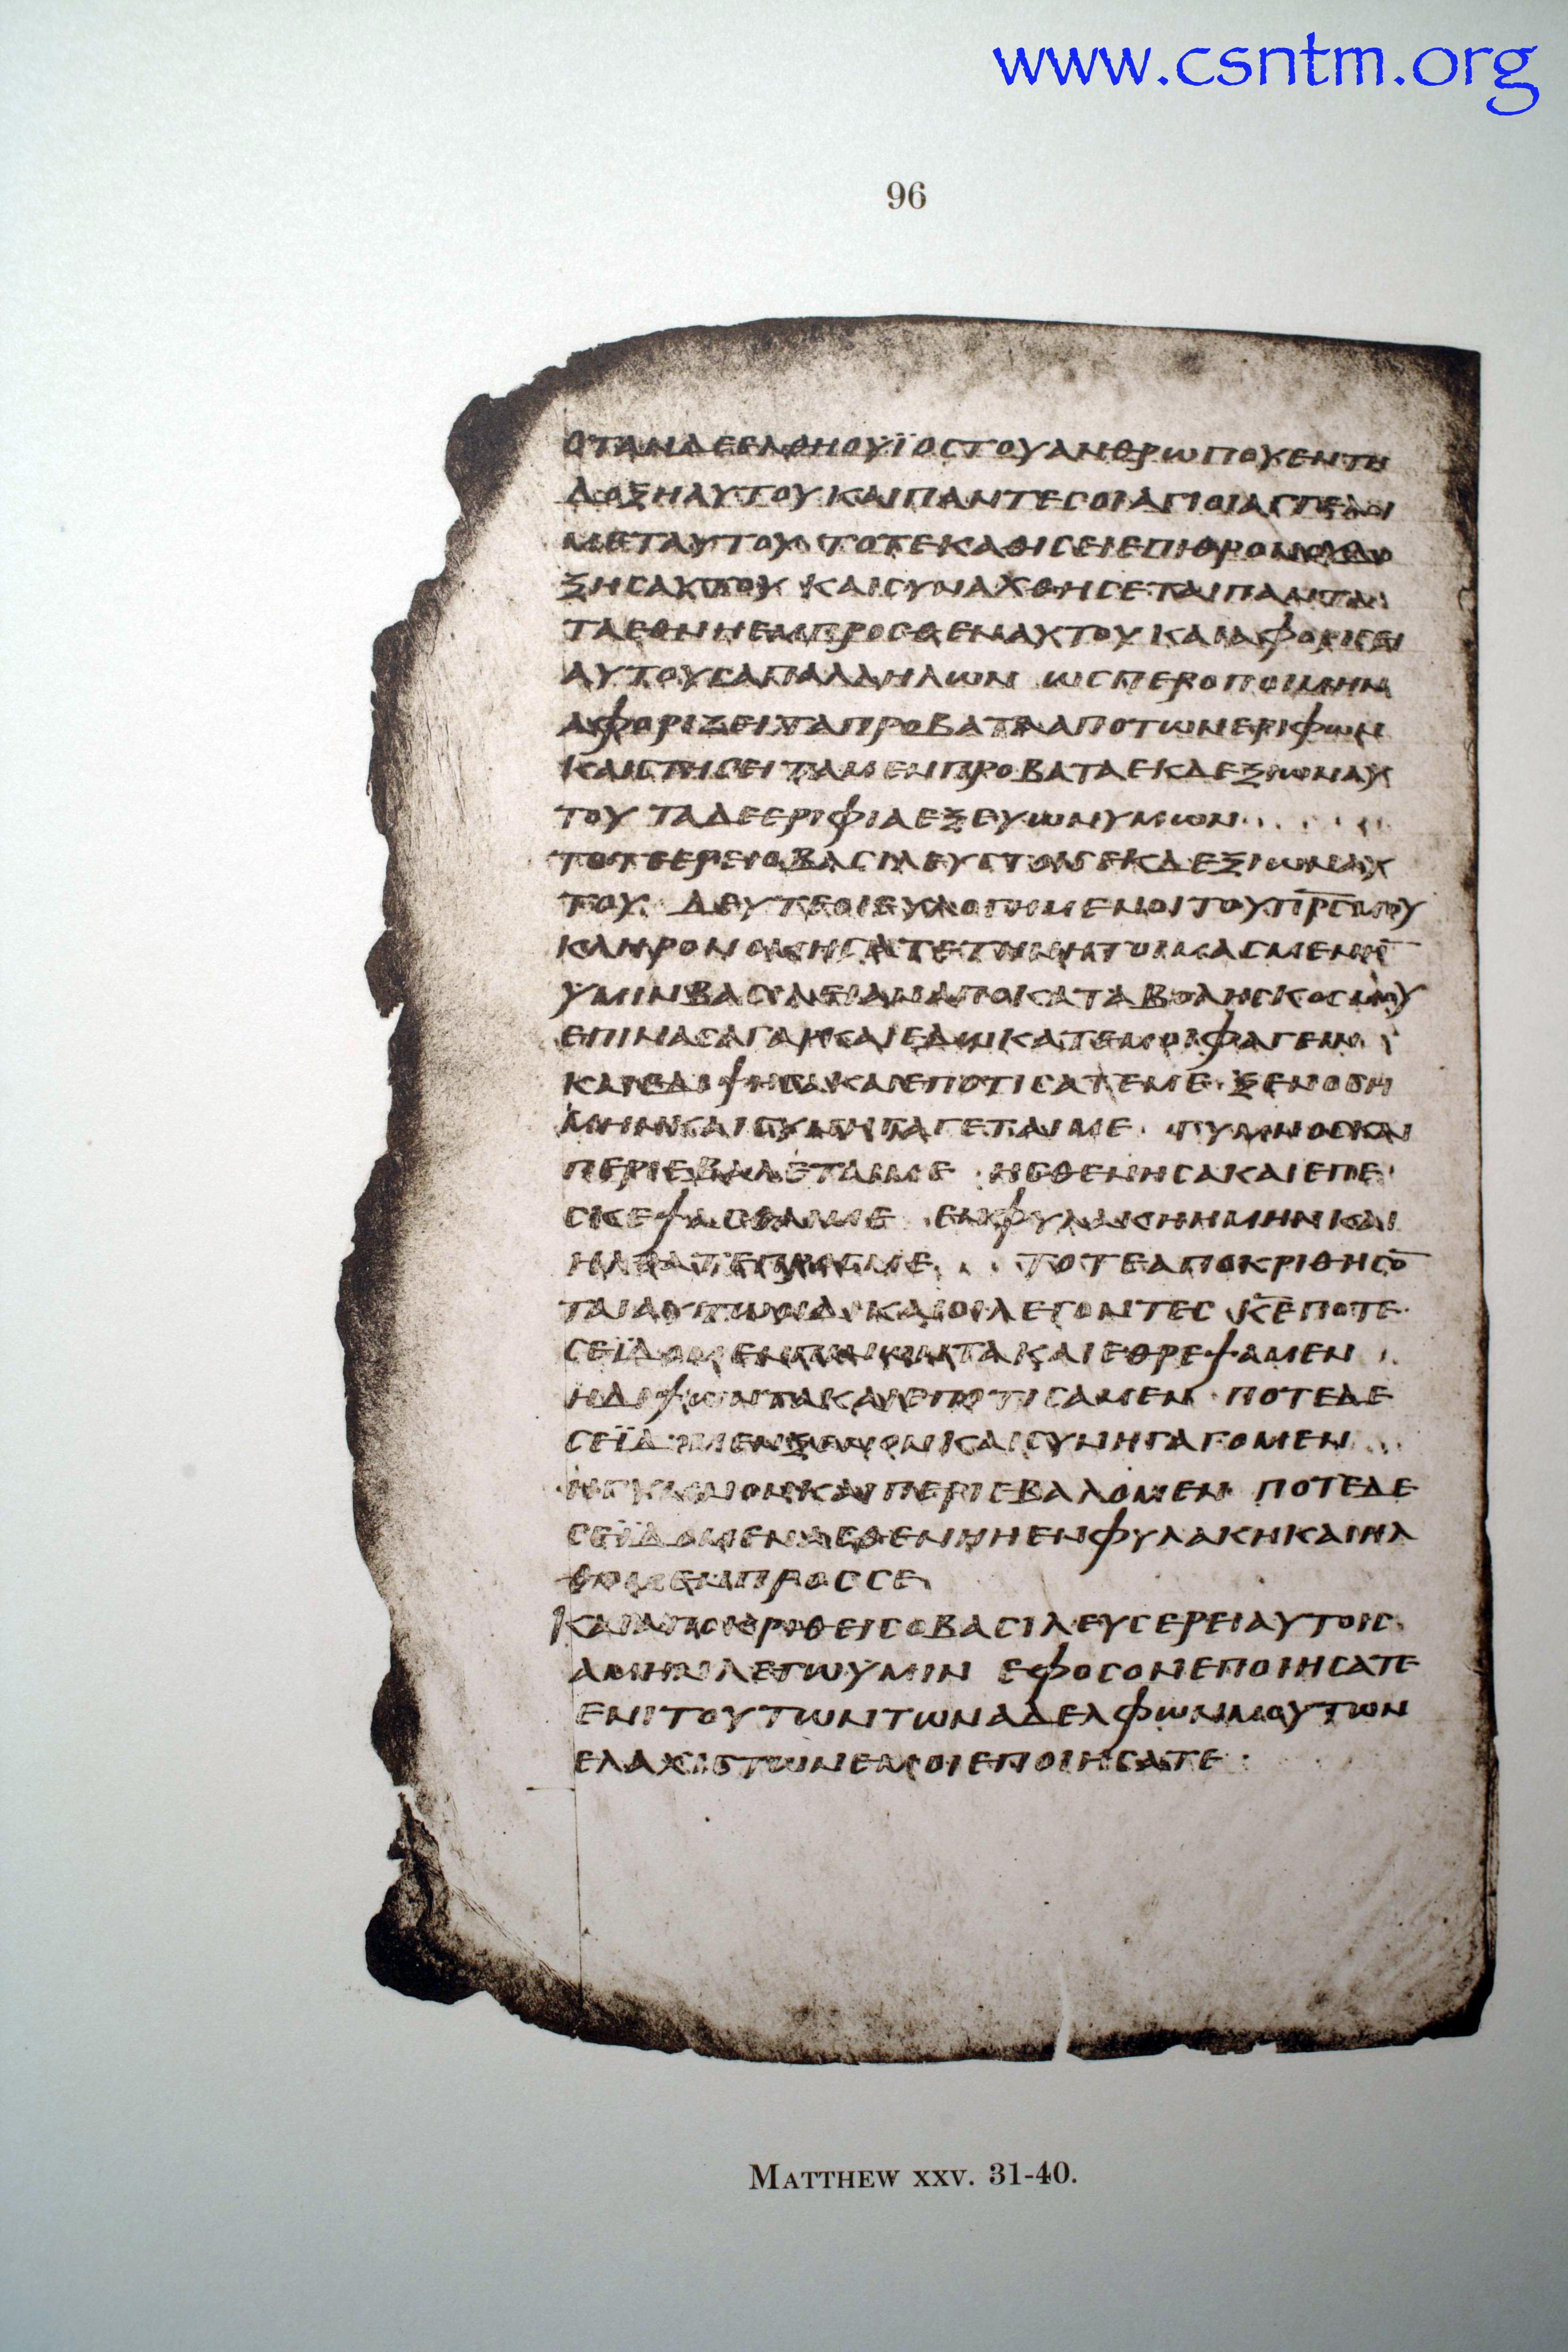 www.csntm.org
96
ΟΤΑΝΔΕΕΛΘΗΟΥΪΟСΤΟΥΑΝΘΡωΠΟΥΕΝΤΗ
ΔΟΞΗΑΥΤΟΥ ΚΑΙΠΑΝΤΕСΟΙΑΓΙΟΙΑΓΓΕΛΟΙ
ΜΕΤΑΥΤΟΥ ΤΟΤΕΚΑΘΙСΕΙΕΠΙΘΡΟΝΟΥΔΟ
ΞΗСΑΥΤΟΥ ΚΑΙСΥΝΑΧΘΗСΕΤΑΙΠΑΝΤΑ
ΤΑΕΘΝΗΕΜΠΡΟСΘΕΝΑΥΤΟΥ ΚΑΙΑΦΟΡΙСΕΙ
ΑΥΤΟΥСΑΠΑΛΛΗΛωΝ ωСΠΕΡΟΠΟΙΜΗΝ
ΑΦΟΡΙΖΕΙΤΑΠΡΟΒΑΤΑΑΠΟΤωΝΕΡΙΦωΝ
ΚΑΙСΤΗСΕΙΤΑΜΕΝΠΡΟΒΑΤΑΕΚΔΕΞΙωΝΑΥ
ΤΟΥ ΤΑΔΕΕΡΙΦΙΑΕΞΕΥωΝΥΜωΝ
ΤΟΤΕΕΡΕΙΟΒΑСΙΛΕΥСΤΟΙСΕΚΔΕΞΙωΝΑΥ
ΤΟΥ ΔΕΥΤΕΟΙΕΥΛΟΓΗΜΕΝΟΙΤΟΥΠΡ̅СΜΟΥ
ΚΛΗΡΟΝΟΜΗСΑΤΕΤΗΝΗΤΟΙΜΑСΜΕΝΗ̅
ΥΜΙΝΒΑСΙΛΕΙΑΝΑΠΟΚΑΤΑΒΟΛΗСΚΟСΜΟΥ
ΕΠΙΝΑСΑΓΑΡΚΑΙΕΔωΚΑΤΕΜΟΙΦΑΓΕΙΝ
ΚΑΙΕΔΙΨΗСΑΚΑΙΕΠΟΤΙСΑΤΕΜΕ ΞΕΝΟСΗ
ΜΗΝΚΑΙСΥΝΗΓΑΓΕΤΑΙΜΕ ΓΥΜΝΟСΚΑΙ
ΠΕΡΙΕΒΑΛΕΤΑΙΜΕ ΗСΘΕΝΗСΑΚΑΙΕΠΕ
СΚΕΨΑСΘΑΙΜΕ ΕΝΦΥΛΑΚΗΗΜΗΝΚΑΙ
ΗΛΘΑΤΕΠΡΟСΜΕ ΤΟΤΕΑΠΟΚΡΙΘΗСΟ̅
ΤΑΙΑΥΤωΟΙΔΙΚΑΙΟΙΛΕΓΟΝΤΕС Κ̅Ε̅ΠΟΤΕ
СΕΪΔΟΜΕΝΠΙΝωΝΤΑΚΑΙΕΘΡΕΨΑΜΕΝ
ΗΔΙΨωΝΤΑΚΑΙΕΠΟΤΙСΑΜΕΝ ΠΟΤΕΔΕ
СΕΪΔΟΜΕΝΞΕΝΟΝΚΑΙСΥΝΗΓΑΓΟΜΕΝ
ΗΓΥΜΝΟΝΚΑΙΠΕΡΙΕΒΑΛΟΜΕΝ ΠΟΤΕΔΕ
СΕΪΔΟΜΕΝΑСΘΕΝΗΗΕΝΦΥΛΑΚΗΚΑΙΗΛ
ΘΟΜΕΝΠΡΟССΕ
ΚΑΙΑΠΟΚΡΙΘΕΙСΟΒΑСΙΛΕΥСΕΡΕΙΑΥΤΟΙС
ΑΜΗΝΛΕΓωΥΜΙΝ ΕΦΟСΟΝΕΠΟΙΗСΑΤΕ
ΕΝΙΤΟΥΤωΝΤωΝΑΔΕΛΦωΝΜΟΥΤωΝ
ΕΛΑΧΙСΤωΝΕΜΟΙΕΠΟΙΗСΑΤΕ
MATTHEW XXV. 31-40.